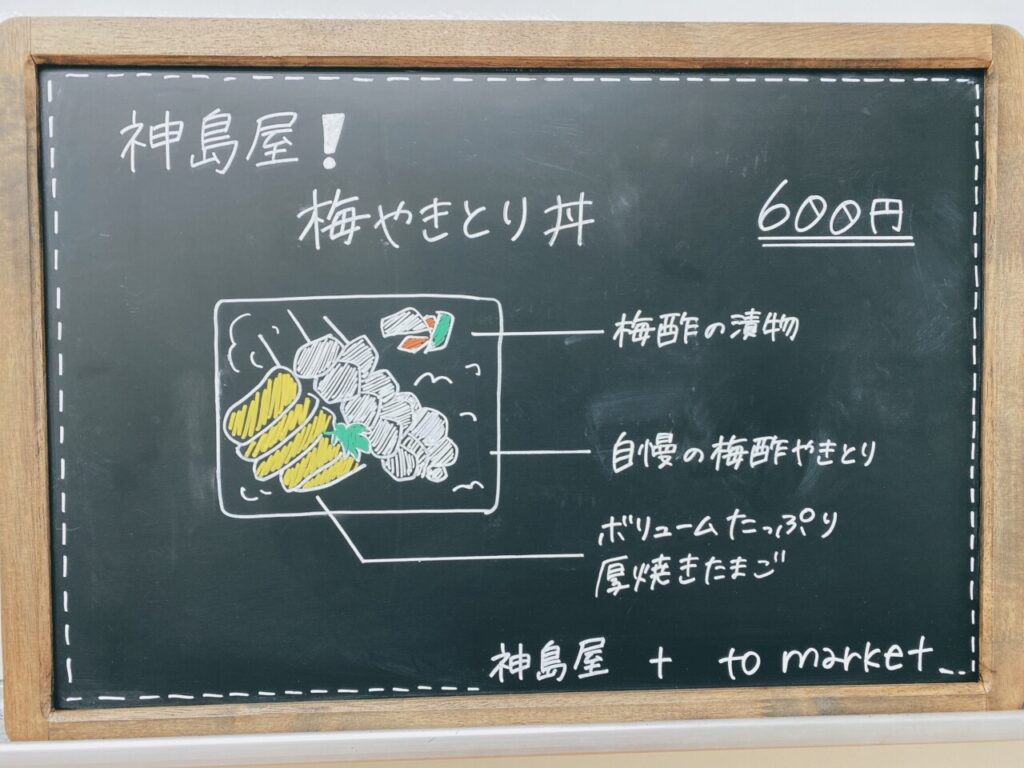 神島屋!
梅やきとり丼 600円
梅酢の漬物
自慢の梅酢やきとり
ボリュームたっぷり
厚焼きたまご
神島屋 + to market